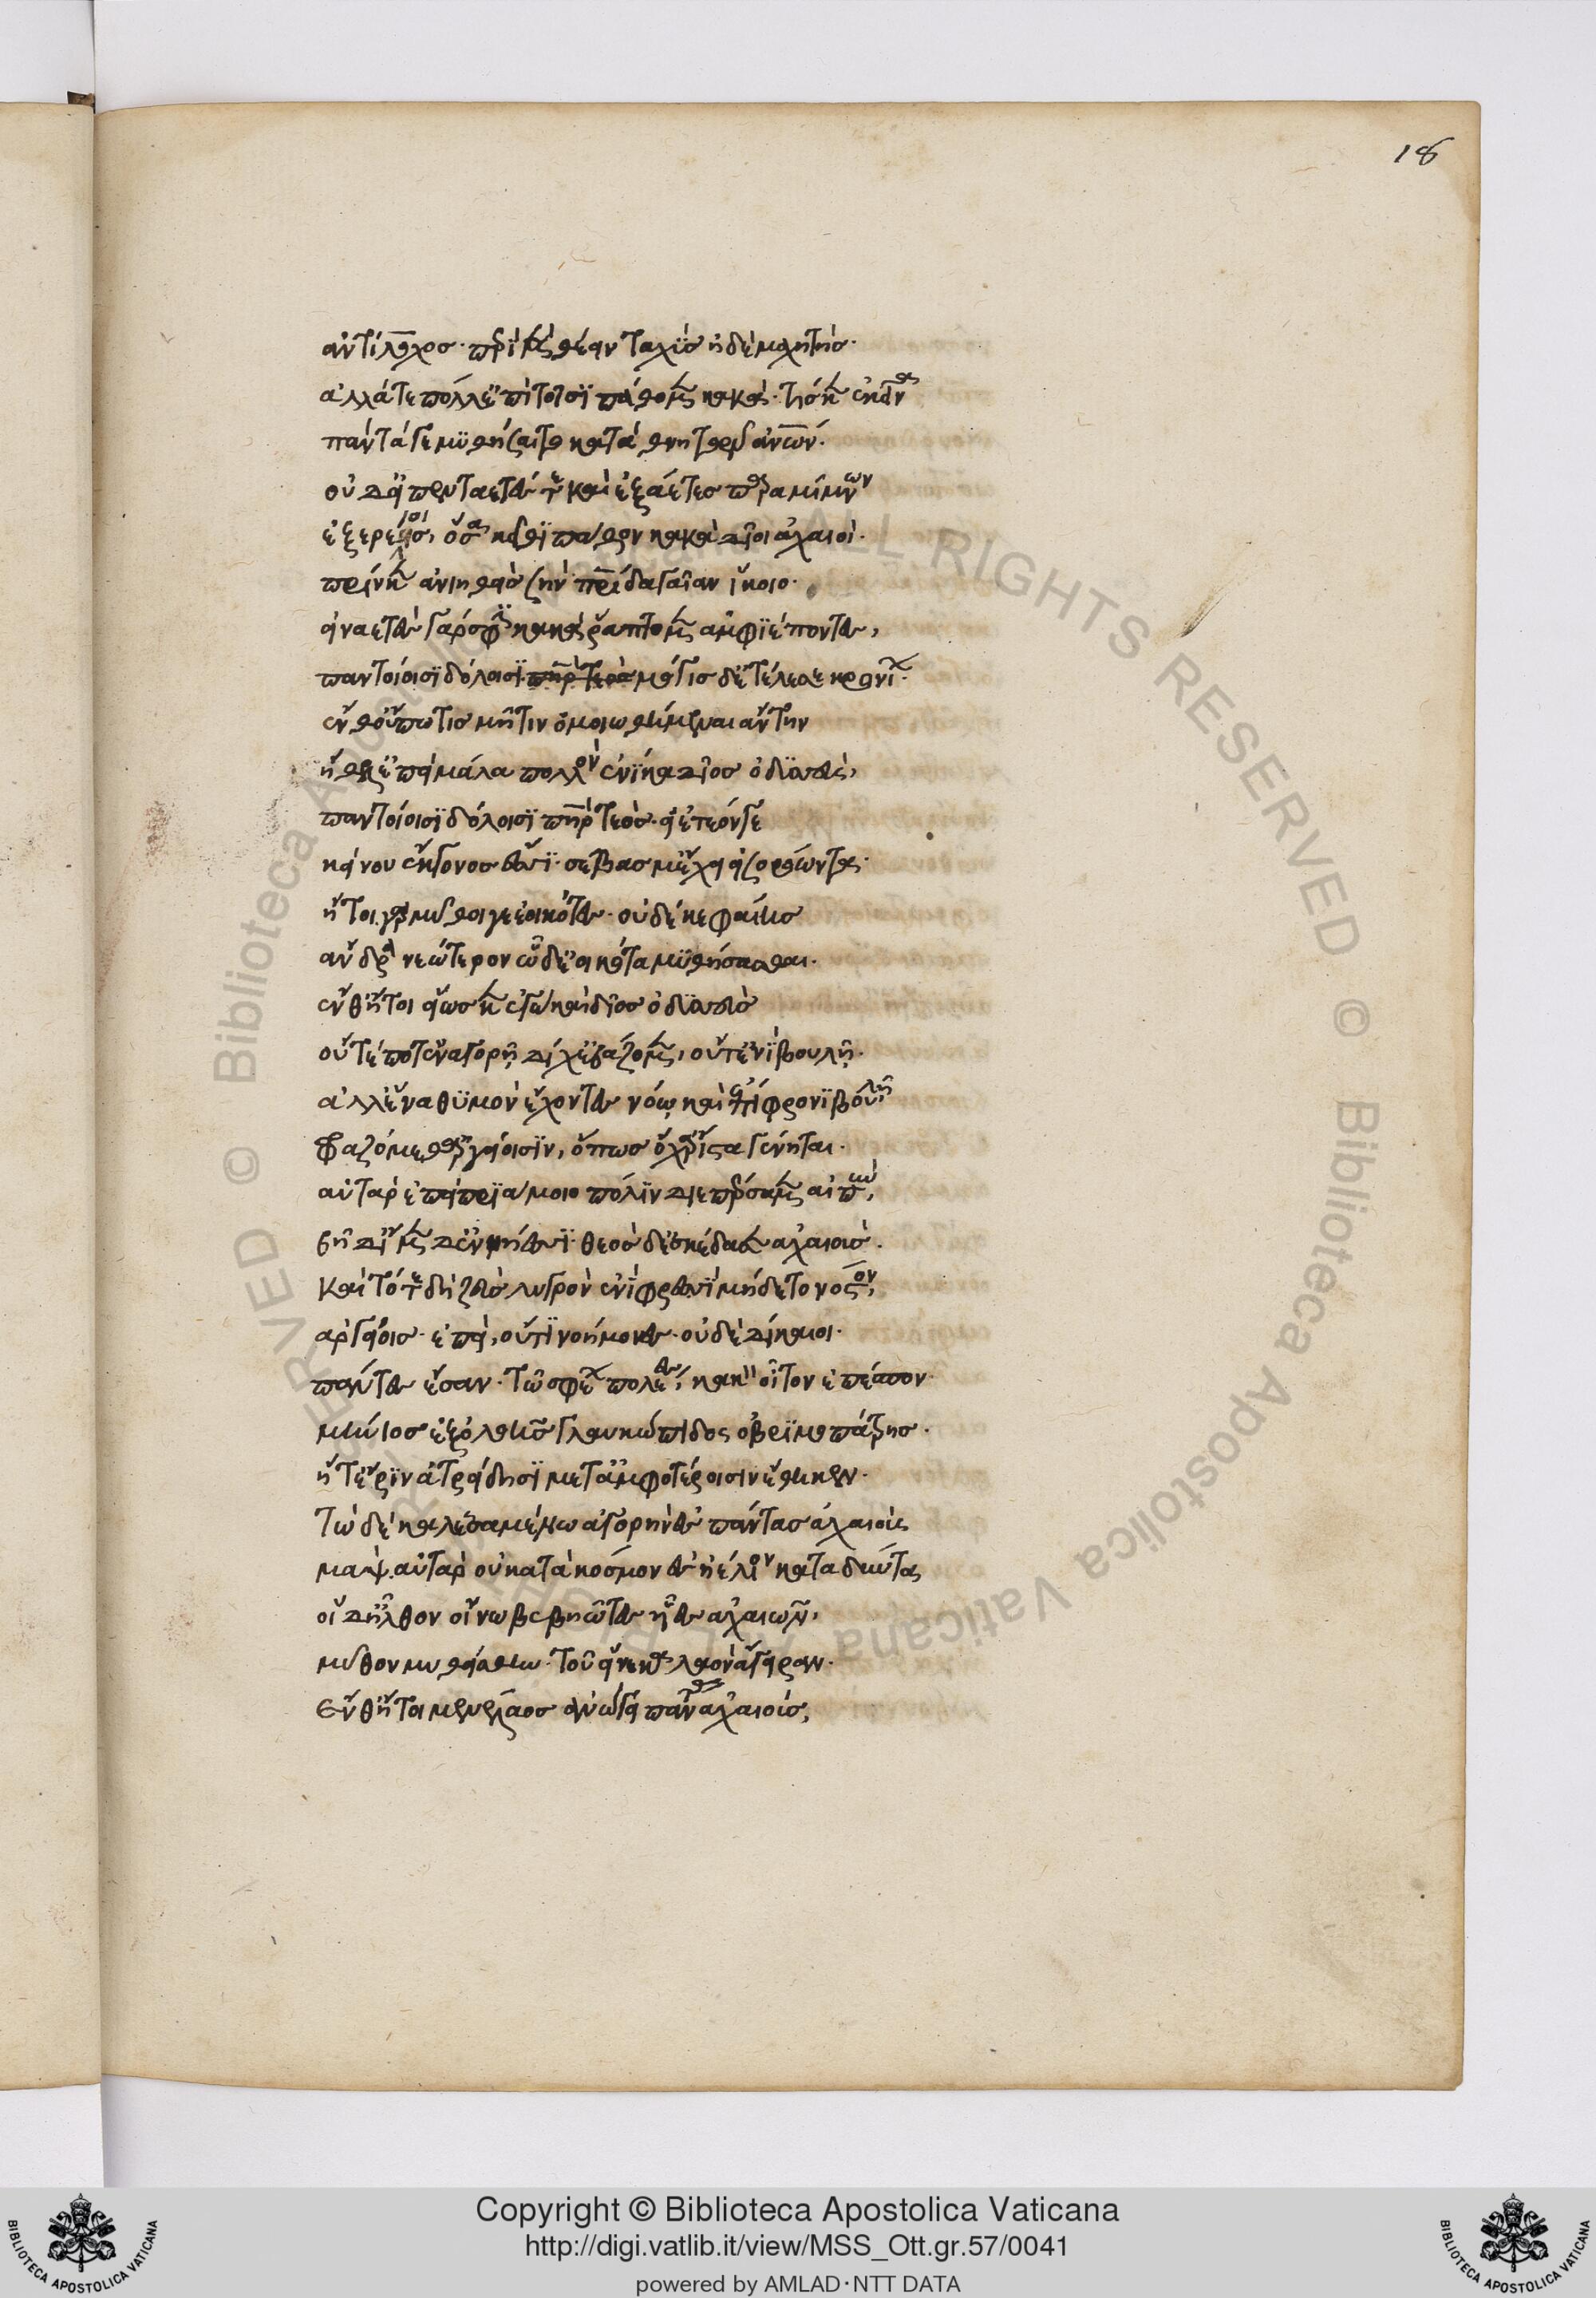 18
ἀντίλοχος· πέρι μὲν θείειν ταχὺς ἠδὲ μαχητής·
ἄλλά τε πόλλ' ἐπὶ τοῖσϊ πάθομεν κακά· τίς κεν ἐκεῖνα
πάντά γε μϋθήσαιτο κατὰ θνητῶν ἀνθρώπων·
οὐδ' εἰ πεντάετές τε καὶ ἑξάετες παραμίμνων
ἐξερέοις, ὅσα κεῖθϊ πάθον κακὰ δῖοι ἀχαιοί·
πρίν κεν ἀνιηθεὶς σὴν πατρίδα γαῖαν ἵκοιο·
εἰνάετες γάρ σφιν κακὰ ῥάπτομεν ἀμφϊέποντες,
παντοίοισϊ δόλοισϊ· μόγις δ' ἐτέλεσσε κρονίων·
ἔνθ' οὔπω τις μῆτιν ὁμοιωθήμεναι ἄντην
ἤθελ' ἐπεὶ μάλα πολλὸν ἐνίκα δῖος ὀδϋσσεὺς,
παντοίοισϊ δόλοισϊ πατὴρ τεός· εἰ ἐτεόν γε
κείνου ἔκγονος ἐσσϊ· σέβας μ' ἔχει εἰσορόωντα·
ἤτοι γὰρ μῦθοι γε ἐοικότες· οὐδέ κε φαίης
ἄνδρα νεώτερον ὧδε ἐοικότα μϋθήσασθαι·
ἔνθ' ἤτοι εἵως κεν ἐγὼ καὶ δῖος ὀδϋσσεὺς
οὔτέ ποτ' ἐν ἀγορῇ δίχ' ἐβάζομεν, οὔτ' ἐνϊ βουλῇ·
ἀλλ' ἕνα θϋμὸν ἔχοντε νόῳ καὶ ἐπίφρονϊ βουλῇ
φραζόμεθ' ἀργείοισϊν, ὅπως ὄχ' ἄριστα γένηται·
αὐτὰρ ἐπεὶ πρϊάμοιο πόλϊν διεπέρσαμεν αἰπὴν,
βῆμεν δ' ἐν νήεσσϊ· θεὸς δ' ἐκέδασσεν ἀχαιούς·
καὶ τότε δὴ ζεὺς λυγρὸν ἐνὶ φρεσϊ μήδετο νόστον,
ἀργείοις· ἐπεὶ, οὔτϊ νοήμονες· οὐδὲ δίκαιοι·
πάντες ἔσαν· τῶ σφέων πολέες, κακὸν οἶτον ἐπέσπον·
μήνιος ἐξ ὀλοῆς γλαυκώπιδος ὀβρϊμοπάτρης·
ἥτ' ἔρϊν ἀτρείδησϊ μετ' ἀμφοτέροισιν ἔθηκεν·
τὼ δὲ καλεσσαμένω ἀγορὴν ἐς πάντας ἀχαιοὺς
μὰψ ἀτὰρ οὐ κατὰ κόσμον ἐς ἠέλιον καταδύντα
οἱ δ' ἦλθον οἴνω βεβηῶτες υἷες ἀχαιῶν,
μῦθον μυθείσθην· τοῦ εἵνεκα λαὸν ἄγειραν·
ἔνθ' ἤτοι μενέλαος ἀνώγει πάντας ἀχαιοὺς,
Copyright © Biblioteca Apostolica Vaticana
http://digi.vatlib.it/view/MSS_Ott.gr.57/0041
powered by AMLAD·NTT DATA